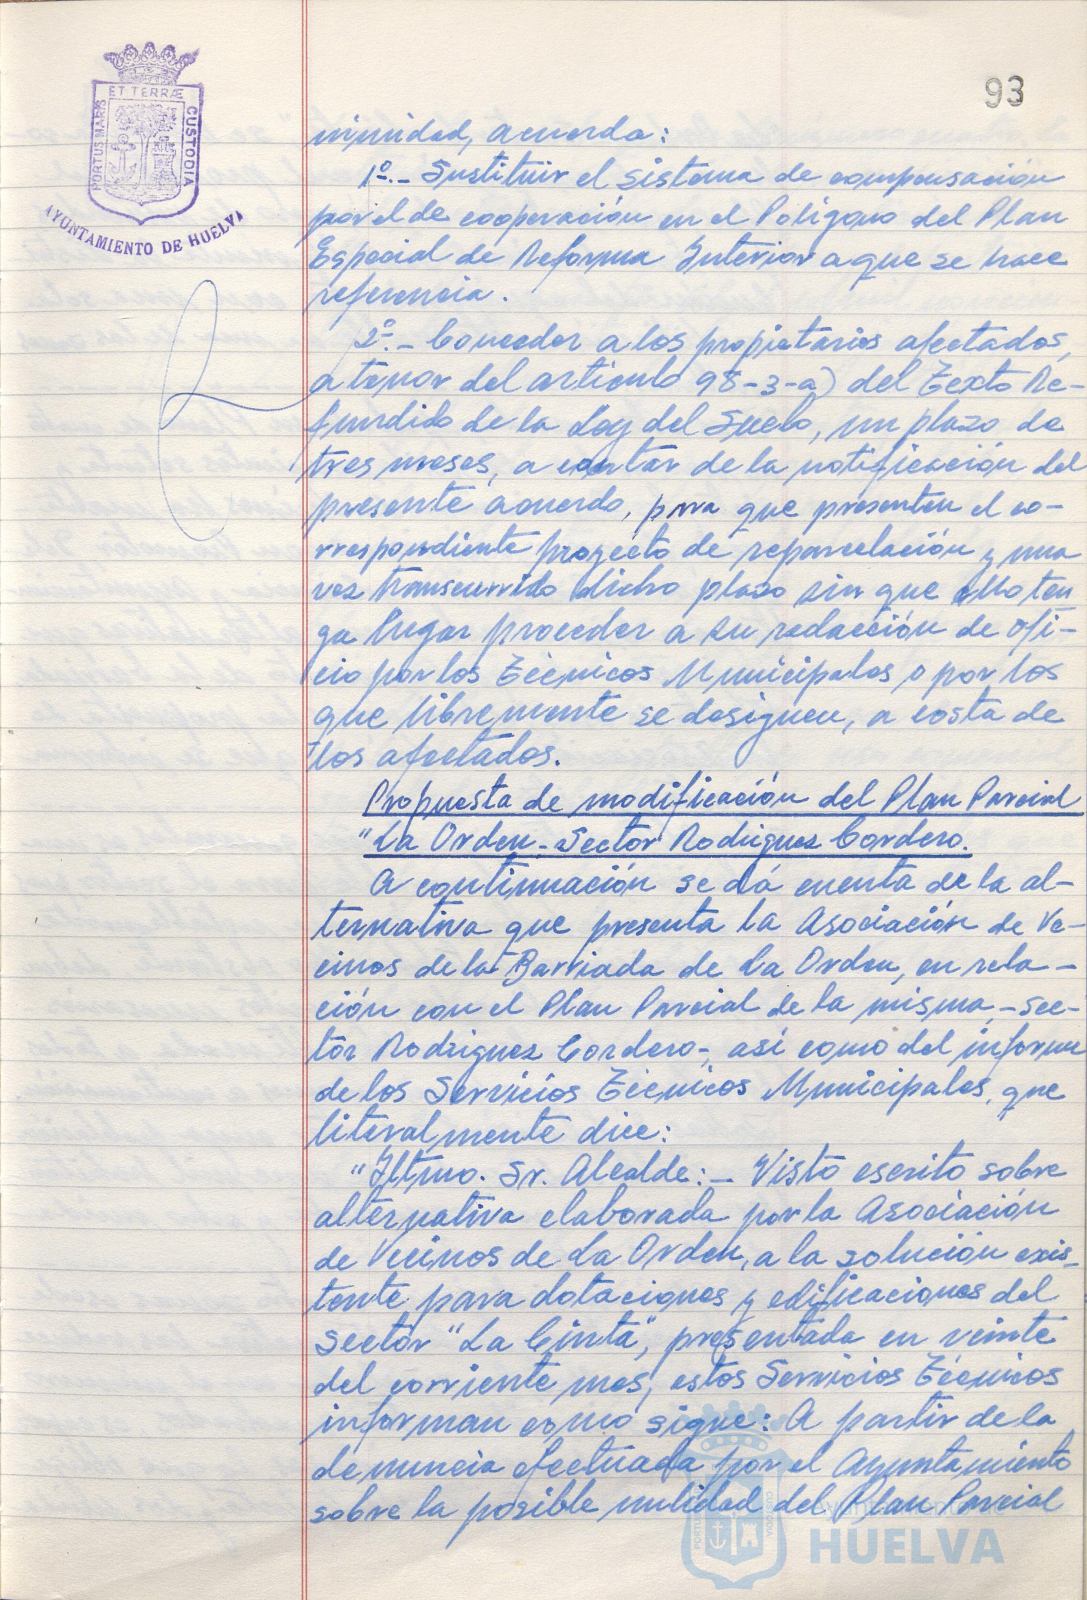 93
PORTUS MARIS ET TERRÆ CUSTODIA
AYUNTAMIENTO DE HUELVA
nimidad, acuerda:
1º.- Sustituir el sistema de compensación
por el de cooperación en el Polígono del Plan
Especial de Reforma Interior a que se hace
referencia.
2º.- Conceder a los propietarios afectados,
a tenor del artículo 98-3-a) del Texto Re-
fundido de la Ley del Suelo, un plazo de
tres meses, a contar de la notificación del
presente acuerdo, para que presenten el co-
rrespondiente proyecto de reparcelación y una
vez transcurrido dicho plazo sin que ello ten
ga lugar proceder a su redacción de ofi-
cio por los Técnicos Municipales o por los
que libremente se designen, a costa de
los afectados.
Propuesta de modificación del Plan Parcial
"La Orden-Sector Rodriguez Cordero.
A continuación se dá cuenta de la al-
ternativa que presenta la Asociación de Ve-
cinos de la Barriada de La Orden, en rela-
ción con el Plan Parcial de la misma -Sec-
tor Rodriguez Cordero-, así como del informe
de los Servicios Técnicos Municipales, que
literalmente dice:
"Iltmo. Sr. Alcalde:- Visto escrito sobre
alternativa elaborada por la Asociación
de Vecinos de La Orden, a la solución exis-
tente para dotaciones y edificaciones del
Sector "La Cinta", presentada en veinte
del corriente mes, estos Servicios Técnicos
informan como sigue: A partir de la
denuncia efectuada por el Ayuntamiento
sobre la posible nulidad del Plan Parcial
Ayuntamiento de
HUELVA